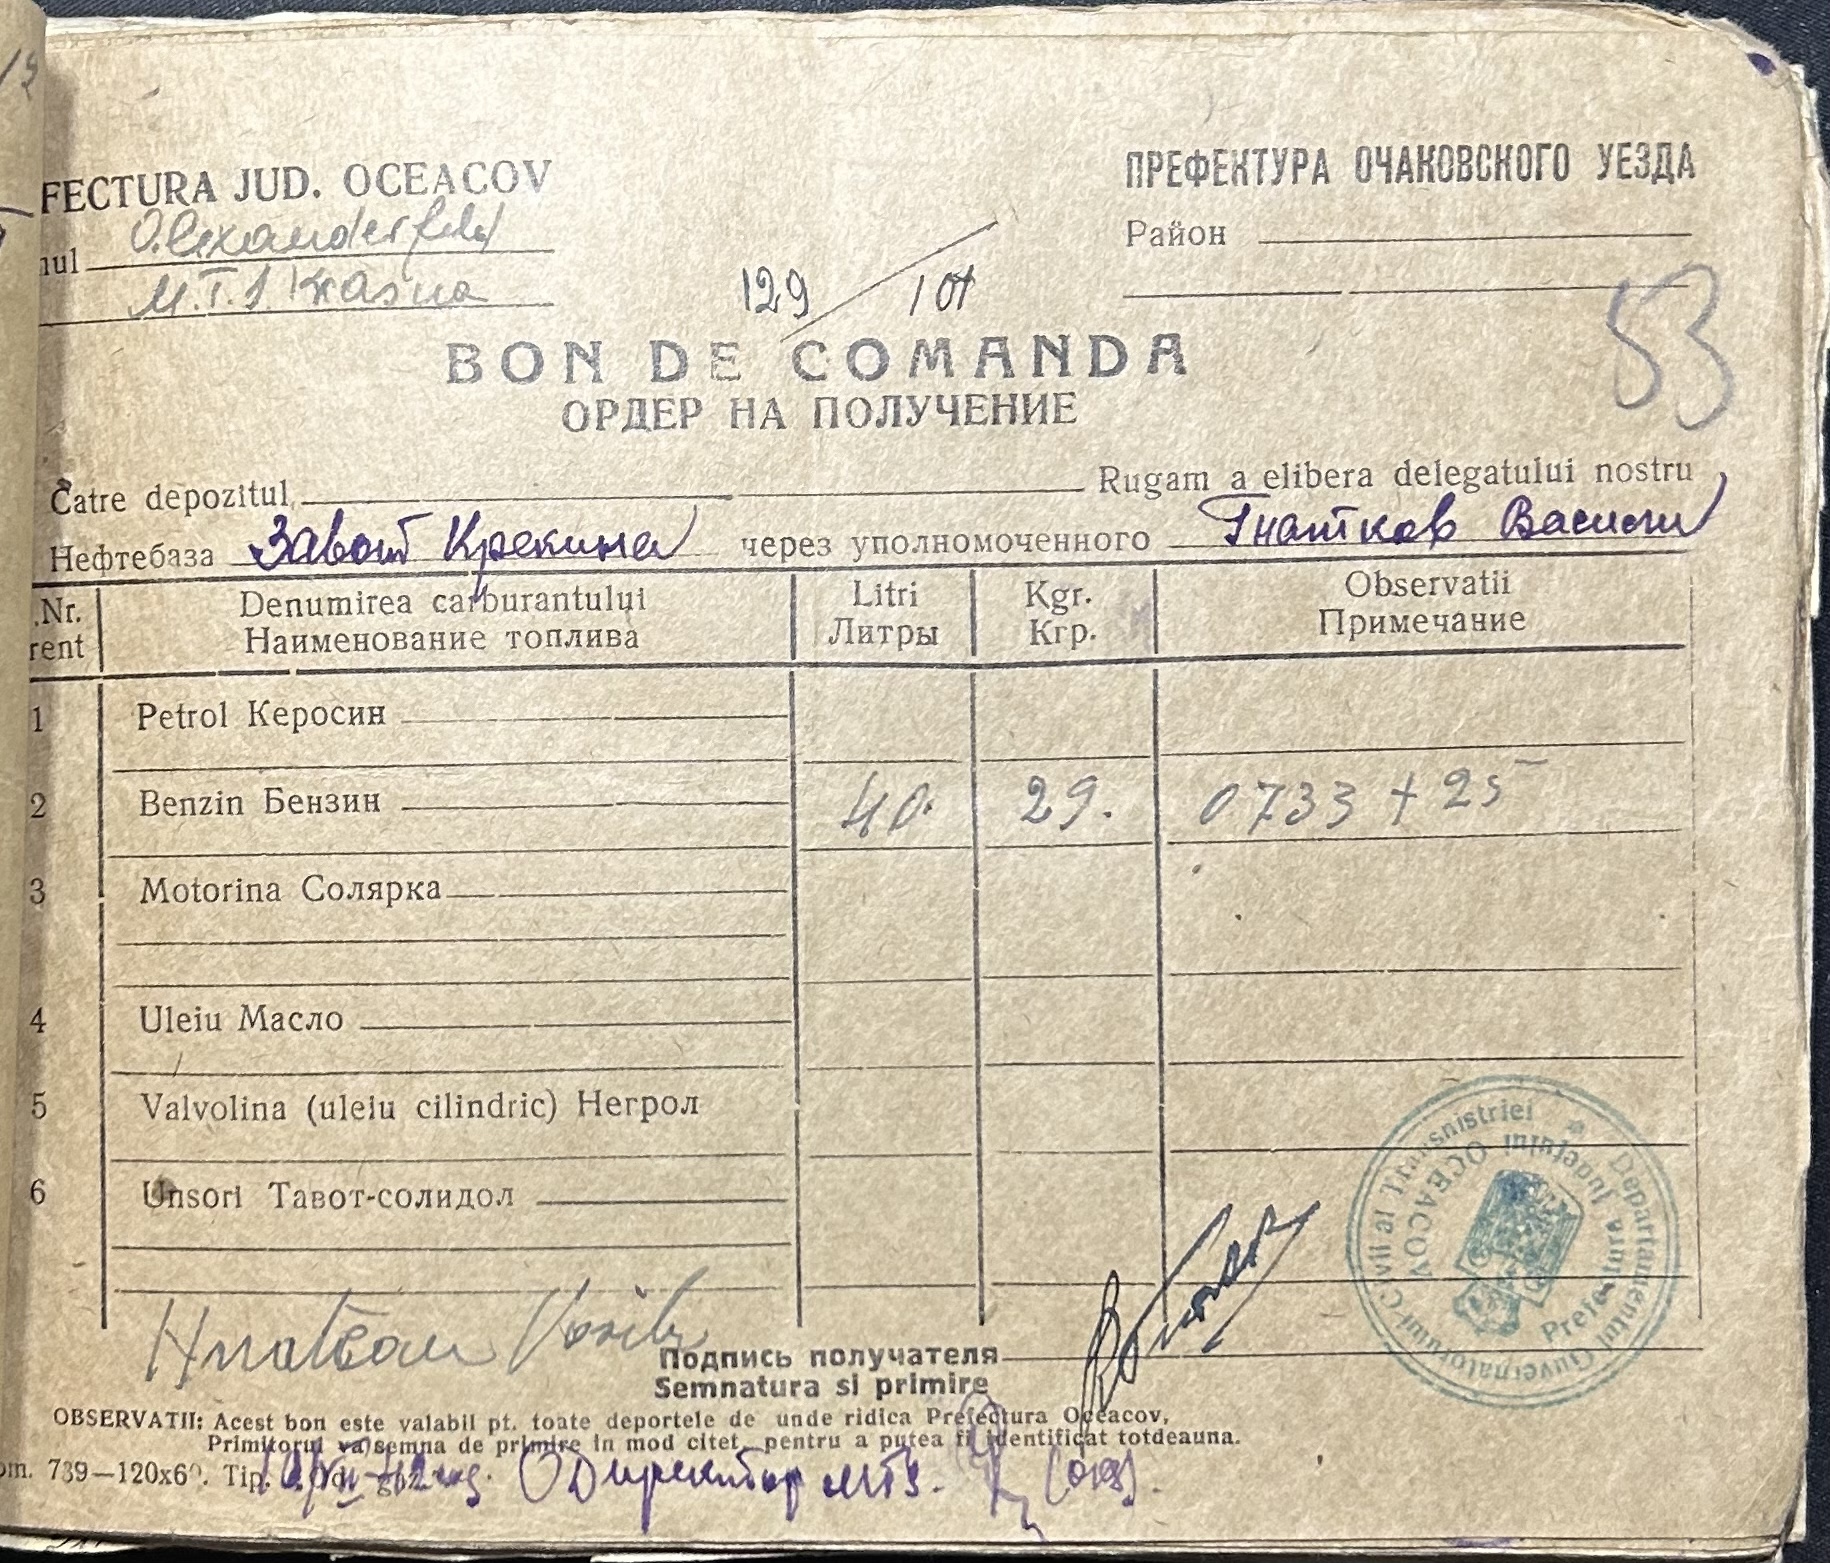 FECTURA JUD. OCEACOV
ПРЕФЕКТУРА ОЧАКОВСКОГО УЕЗДА
nul Alexanderfeld
Район
М.Т.S. Krasna
129 / 101
53
BON DE COMANDA
ОРДЕР НА ПОЛУЧЕНИЕ
Catre depozitul Rugam a elibera delegatului nostru
Нефтебаза Завод Крекинга через уполномоченного Гнатков Василий
.Nr. Denumirea carburantului Litri Kgr. Observatii
rent Наименование топлива Литры Кгр. Примечание
1 Petrol Керосин
2 Benzin Бензин 40. 29. 0733 + 25
3 Motorina Солярка
4 Uleiu Масло
5 Valvolina (uleiu cilindric) Негрол
6 Unsori Тавот-солидол
Guvernatorul Civil al Transnistriei * Departamentul
Prefectura Judetului OCEACOV
Hnatcau Vasili
Подпись получателя
Semnatura si primire
OBSERVATII: Acest bon este valabil pt. toate deportele de unde ridica Prefectura Oceacov,
Primitorul va semna de primire in mod citet pentru a putea fi identificat totdeauna.
om. 739—120x60. Tip.
Директор МТS.